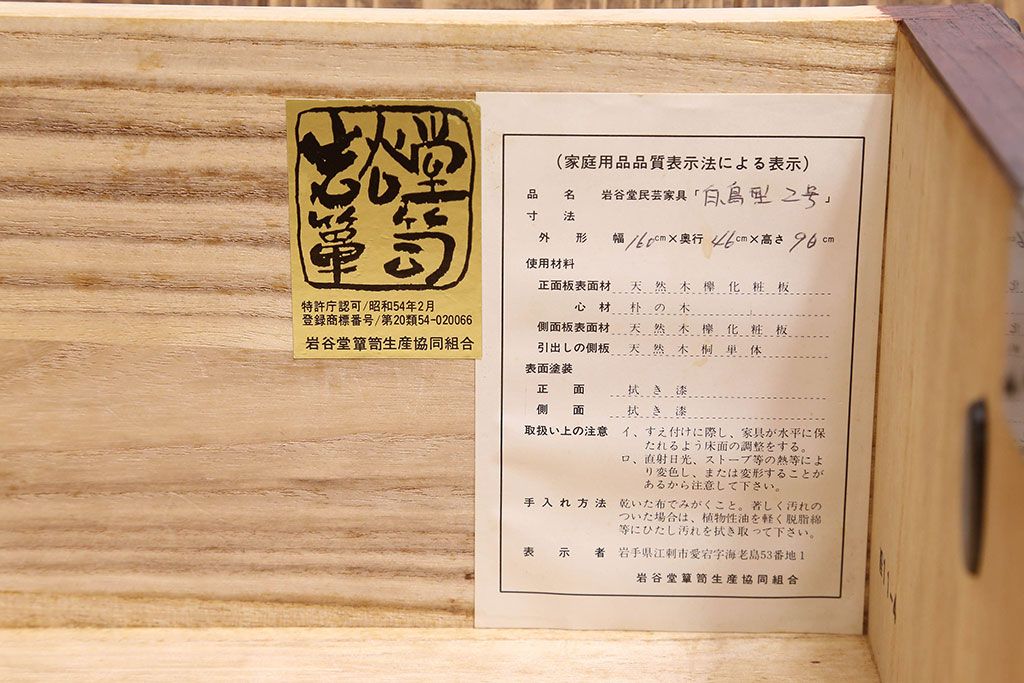 岩谷堂
簞笥
特許庁認可/昭和54年2月
登録商標番号/第20類54-020066
岩谷堂簞笥生産協同組合
(家庭用品品質表示法による表示)
品名 岩谷堂民芸家具「白鳥型 2号」
寸法
外形 幅160cm×奥行46cm×高さ96cm
使用材料
正面板表面材 天然木欅化粧板
心材 朴の木
側面板表面材 天然木欅化粧板
引出しの側板 天然木桐単体
表面塗装
正面 拭き漆
側面 拭き漆
取扱い上の注意 イ、すえ付けに際し、家具が水平に保
たれるよう床面の調整をする。
ロ、直射日光、ストーブ等の熱等によ
り変色し、または変形することが
あるから注意して下さい。
手入れ方法 乾いた布でみがくこと。著しく汚れの
ついた場合は、植物性油を軽く脱脂綿
等にひたし汚れを拭き取って下さい。
表示者 岩手県江刺市愛宕字海老島53番地1
岩谷堂簞笥生産協同組合